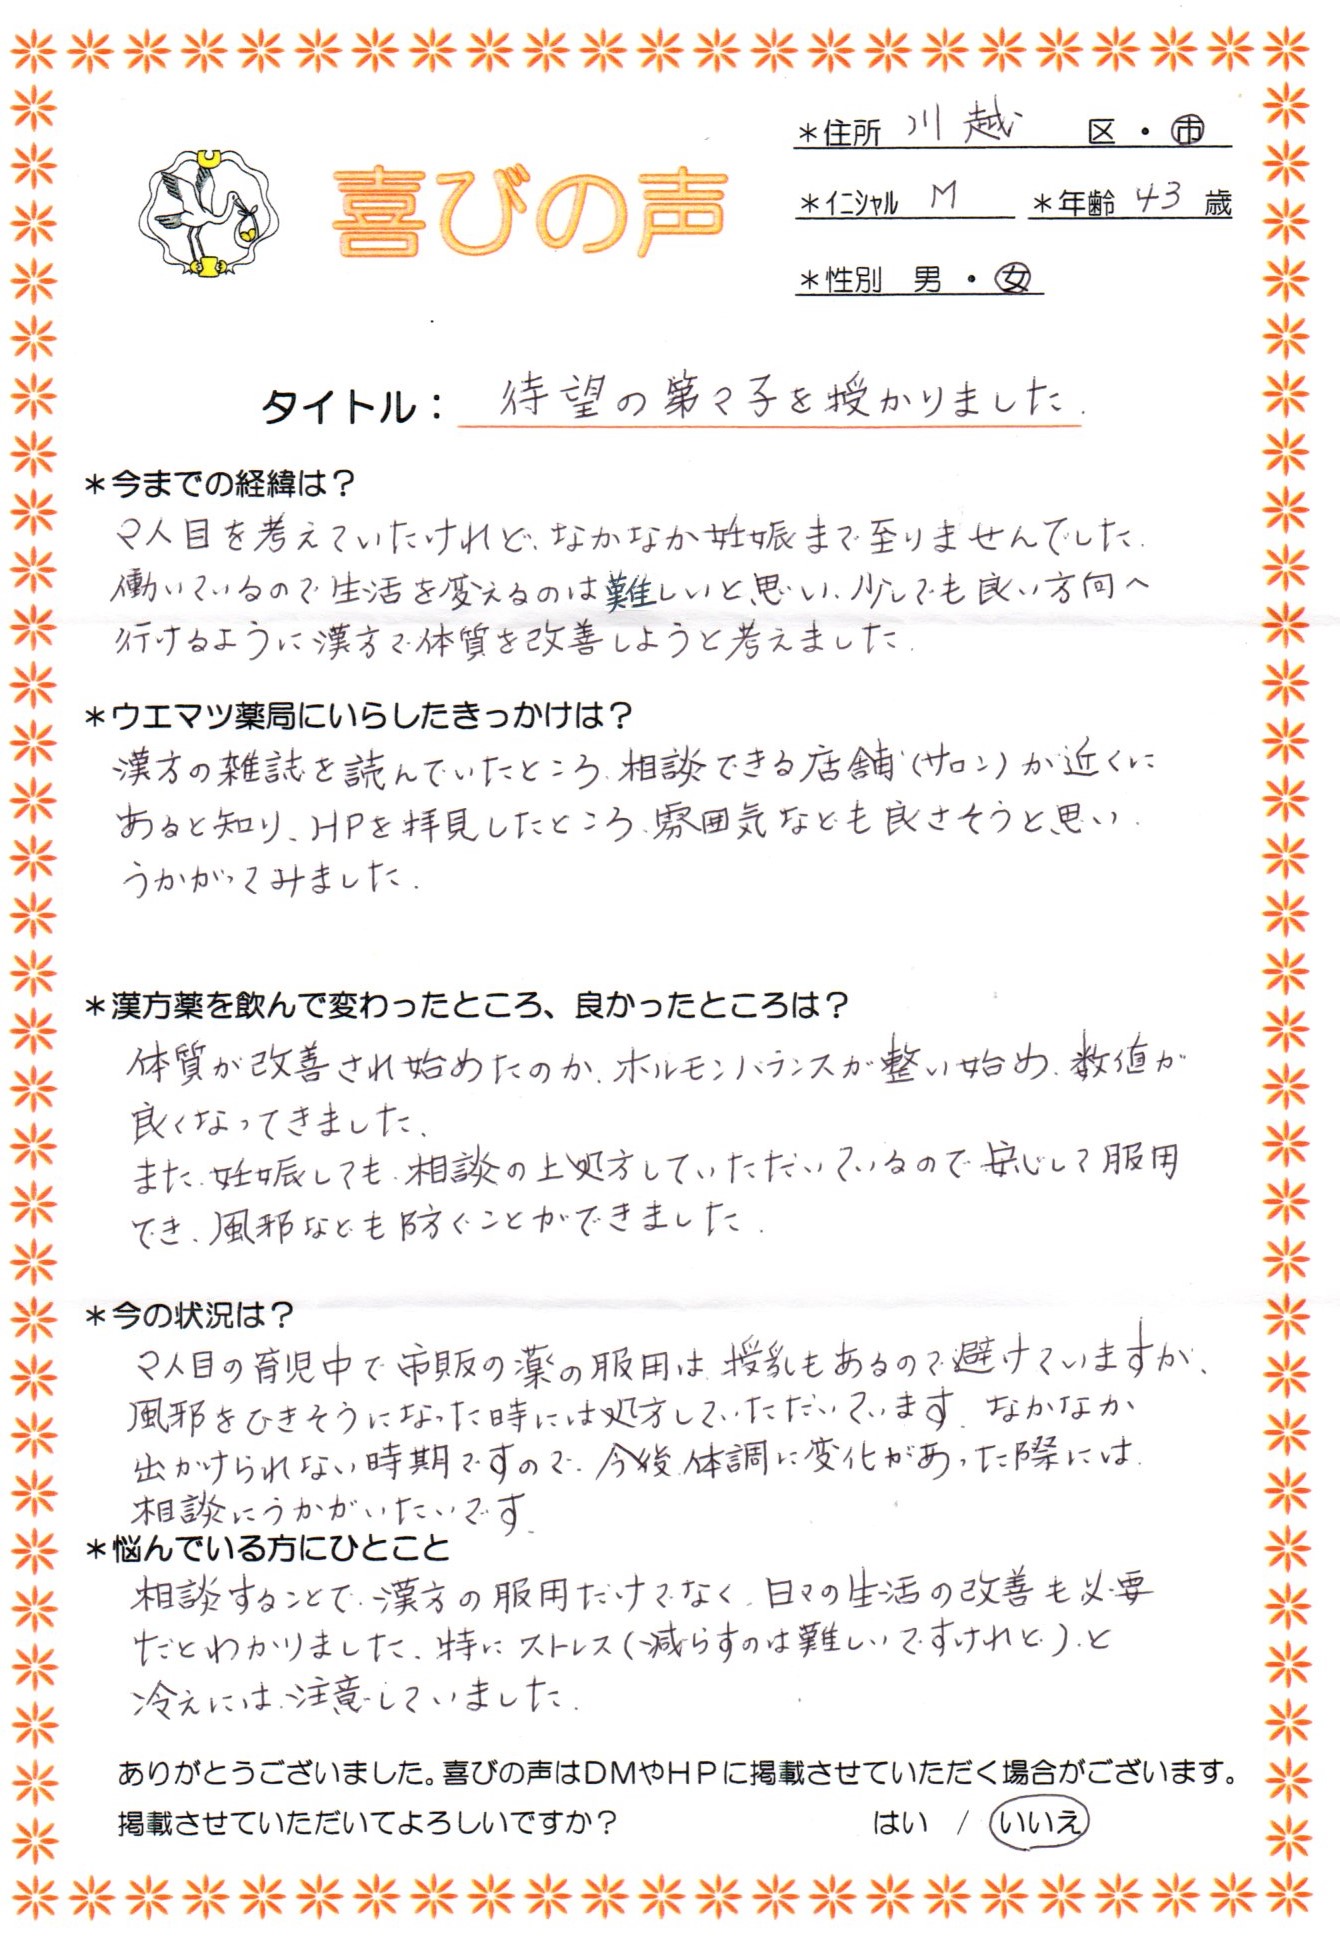 ＊住所 川越 区・市
喜びの声
＊イニシャル M ＊年齢 43 歳
＊性別 男・女
タイトル： 待望の第2子を授かりました.
＊今までの経緯は？
2人目を考えていたけれど、なかなか妊娠まで至りませんでした.
働いているので生活を変えるのは難しいと思い、少しでも良い方向へ
行けるように漢方で体質を改善しようと考えました.
＊ウエマツ薬局にいらしたきっかけは？
漢方の雑誌を読んでいたところ、相談できる店舗(サロン)が近くに
あると知り、HPを拝見したところ、雰囲気なども良さそうと思い、
うかがってみました.
＊漢方薬を飲んで変わったところ、良かったところは？
体質が改善され始めたのか、ホルモンバランスが整い始め、数値が
良くなってきました、
また、妊娠しても、相談の上処方していただいているので安心して服用
でき、風邪なども防ぐことができました.
＊今の状況は？
2人目の育児中で市販の薬の服用は、授乳もあるので避けていますが、
風邪をひきそうになった時には処方していただいています. なかなか
出かけられない時期ですので、今後、体調に変化があった際には、
相談にうかがいたいです.
＊悩んでいる方にひとこと
相談することで、漢方の服用だけでなく、日々の生活の改善も必要
だとわかりました、特にストレス(減らすのは難しいですけれど)と
冷えには、注意していました.
ありがとうございました。喜びの声はDMやHPに掲載させていただく場合がございます。
掲載させていただいてよろしいですか？ はい / いいえ